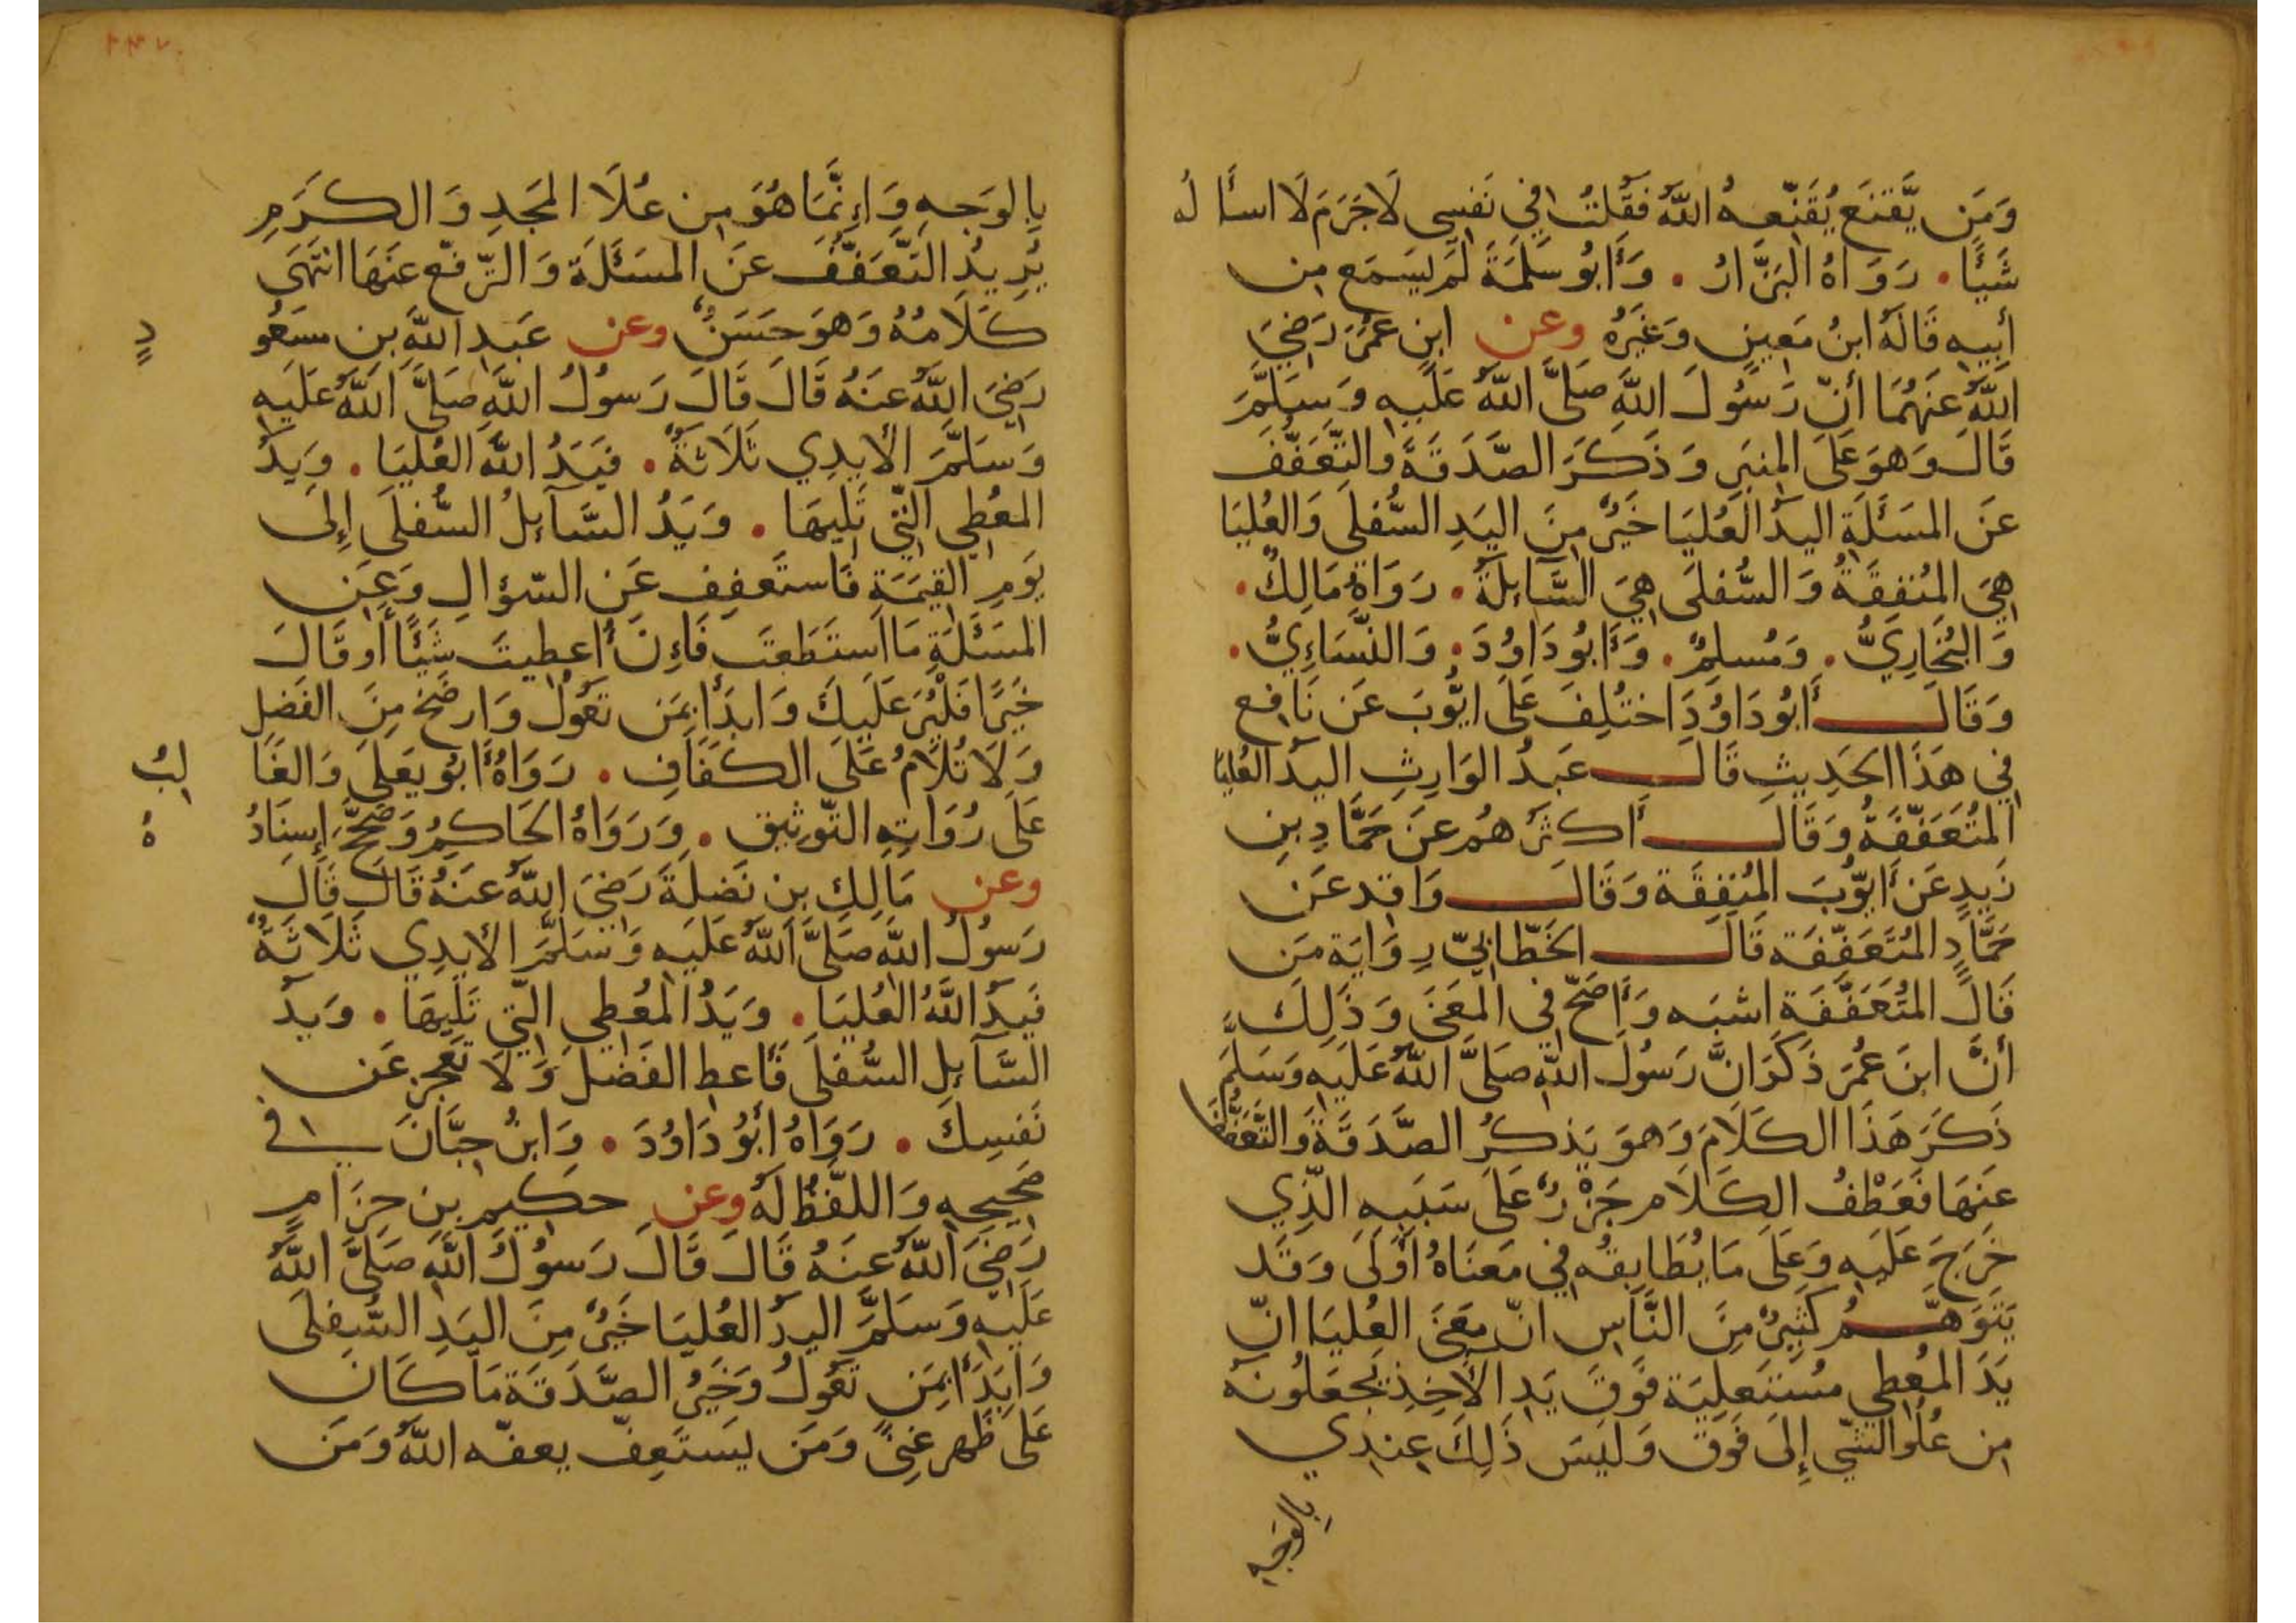 وَمَن يَّقنَع يُقَنِّعهُ اللَّهُ فَقُلتُ فِي نَفسِي لَاجَرَمَ لَا اسأَلُه
شَيئًا. رَوَاهُ البَزَّارُ. وَأَبُو سَلَمَةَ لَم يَسمَع مِن
أَبِيهِ قَالَهُ ابنُ مَعِينٍ وَغَيرُهُ وعن ابنِ عُمَرَ رَضِيَ
اللَّهُ عَنهُمَا أَنَّ رَسُولَ اللَّهِ صَلَّى اللَّهُ عَلَيهِ وَسَلَّمَ
قَالَ وَهوَ عَلَى المِنبَرِ وَذَكَرَ الصَّدَقَةَ وَالتَّعَفُّفَ
عَنِ المَسئَلَةِ اليَدُ العُليَا خَيرٌ مِنَ اليَدِ السُّفلَى وَالعُليَا
هِيَ المُنفِقَةُ وَالسُّفلَى هِيَ السَّآئِلَةُ. رَوَاهُ مَالِكٌ.
وَالبُخَارِيُّ. وَمُسلِمٌ. وَأَبُودَاوُدَ. وَالنَّسَاءِيُّ.
وَقَالَ أَبُودَاوُدَ اختُلِفَ عَلَى ايُّوبَ عَن نَافِع
فِي هَذَا الحَدِيثِ قَالَ عَبدُ الوَارِثِ اليَدُ العُليَا
المُتَعَفِّفَةُ وَقَالَ أَكثَرُهُم عَن حَمَّادِ بنِ
زَيدٍ عَن أَيُّوبَ المُنفِقَة وَقَالَ وَاقِد عَن
حَمَّادٍ المُتَعَفِّفَة قَالَ الخَطَّابِيّ رِوَايَة مَن
قَالَ المُتَعَفِّفَة اشبَه وَأَصَحّ فِي المَعنَى وَذَلِكَ
أَنَّ ابنَ عُمَرَ ذَكَرَ انَّ رَسُولَ اللَّهِ صَلَّى اللَّهُ عَلَيهِ وَسَلَّمَ
ذَكَرَ هَذَا الكَلَامَ وَهوَ يَذكُرُ الصَّدَقَةَ وَالتَّعَفُّفَ
عَنهَا فَعَطْفُ الكَلَامِ جَرْرٌ عَلَى سَبَبِهِ الَّذِي
خَرَجَ عَلَيهِ وَعَلَى مَا يُطَابِقُه فِي مَعنَاهُ أَولَى وَقَد
يَتَوَهَّمُ كَثِيرٌ مِنَ النَّاسِ انّ مَعنَى العُليَا انّ
يَدَ المُعطِي مُستَعلِيَة فَوقَ يَدِ الأَخِذِ يَجعَلُونَه
مِن عُلُوِّ الشَّيِ إِلَى فَوق وَلَيسَ ذَلِكَ عِندِي
بِالوَجهِ
بِالوَجهِ وَإِنَّمَا هُوَ مِن عُلَا المَجدِ وَالكَرَمِ
يُرِيدُ التَّعَفُّفَ عَنِ المَسئَلَة وَالتَّرَفّع عَنهَا انتَهَى
كَلَامُهُ وَهوَ حَسَنٌ وعن عَبدِ اللَّهِ بنِ مسعُودٍ
رَضِيَ اللَّهُ عَنهُ قَالَ قَالَ رَسُولُ اللَّهِ صَلَّى اللَّهُ عَلَيهِ
وَسَلَّمَ الأَيدِي ثَلَاثَةٌ. فَيَدُ اللَّهِ العُليَا. وَيَدُ
المُعطِي الَّتِي تَلِيهَا. وَيَدُ السَّآئِلُ السُّفلَى إِلَى
يَومِ القِيمَةِ فَاستَعفِف عَنِ السُّؤالِ وَعَنِ
المَسئَلَةِ مَا استَطَعتَ فَإِن أُعطِيتَ شَيئًا أَو قَالَ
خَيرًا فَليُرَ عَلَيكَ وَابدَأ بِمَن تَعُولُ وَارضَخ مِنَ الفَضلِ
وَلَا تُلَامُ عَلَى الكَفَافِ. رَوَاهُ أَبُو يَعلَى وَالغَالِبُ
عَلَى رُوَاتِهِ التَّوثِيق. وَرَوَاهُ الحَاكِمُ وَصَحَّحَ إِسنَادَهُ
وعن مَالِكِ بنِ نَضلَةَ رَضِيَ اللَّهُ عَنهُ قَالَ قَالَ
رَسُولُ اللَّهِ صَلَّى اللَّهُ عَلَيهِ وَسَلَّمَ الأَيدِي ثَلَاثَةٌ
فَيَدُ اللَّهِ العُليَا. وَيَدُ المُعطِي الَّتِي تَلِيهَا. وَيَدُ
السَّآئِلِ السُّفلَى فَأَعطِ الفَضلَ وَلَا تَعجِز عَن
نَفسِكَ. رَوَاهُ أَبُو دَاوُدَ. وَابنُ حِبَّانَ فِي
صَحِيحِهِ وَاللَّفظُ لَهُ وعن حكِيمِ بنِ حِزَامٍ
رَضِيَ اللَّهُ عَنهُ قَالَ قَالَ رَسُولُ اللَّهِ صَلَّى اللَّهُ
عَلَيهِ وَسَلَّمَ اليَدُ العُليَا خَيرٌ مِنَ اليَدِ السُّفلَى
وَابدَأ بِمَن تَعُولُ وَخَيرُ الصَّدَقَة مَا كَانَ
عَلَى ظَهرِ غِنًى وَمَن يَستَعِفّ يعفّه اللَّهُ وَمَن